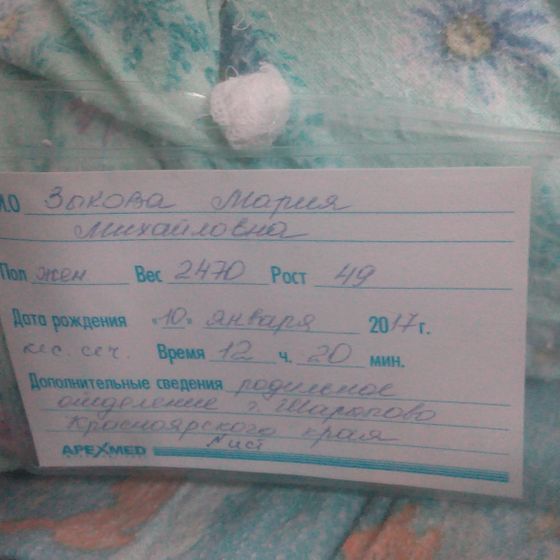 И.О Зыкова Мария
Михайловна
Пол жен Вес 2470 Рост 49
Дата рождения «10» января 2017 г.
кес. сеч. Время 12 ч. 20 мин.
Дополнительные сведения родильное
отделение г. Шарыпово
Красноярского края
APEXMED